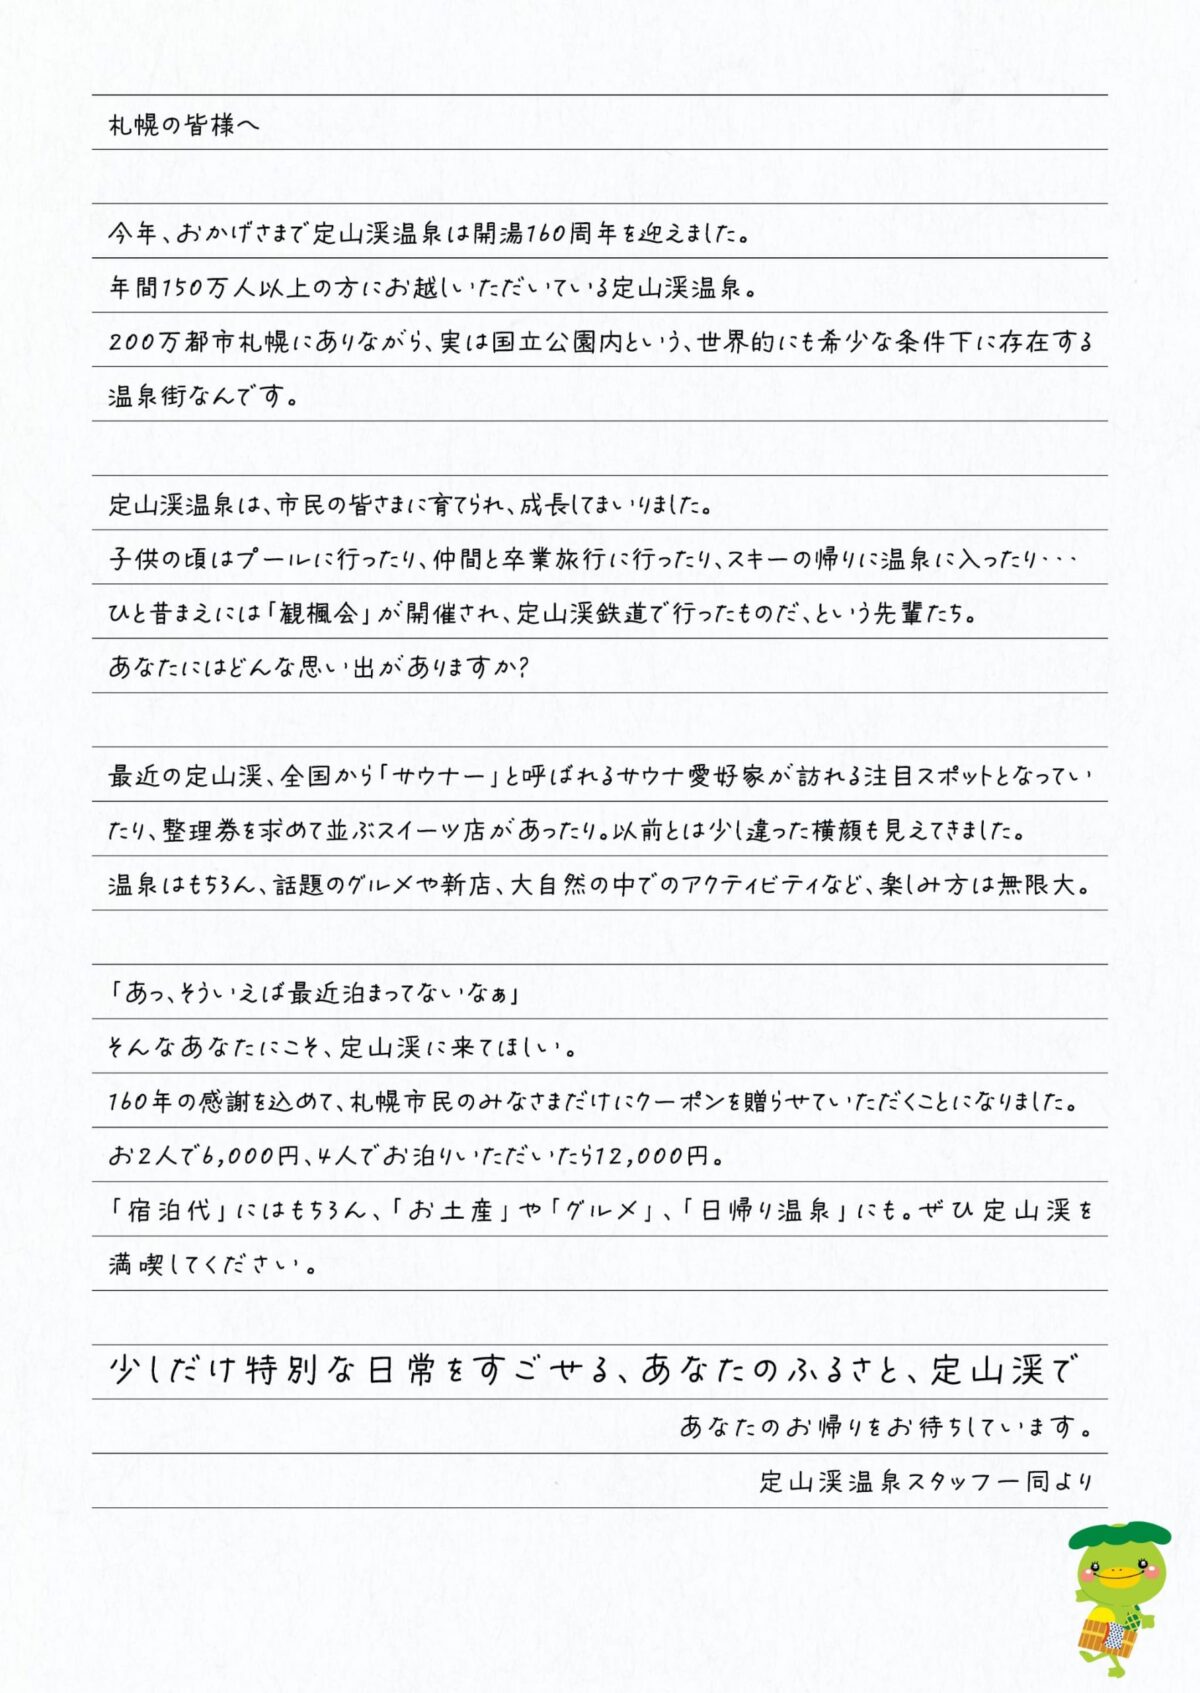 札幌の皆様へ
今年、おかげさまで定山渓温泉は開湯160周年を迎えました。
年間150万人以上の方にお越しいただいている定山渓温泉。
200万都市札幌にありながら、実は国立公園内という、世界的にも希少な条件下に存在する
温泉街なんです。
定山渓温泉は、市民の皆さまに育てられ、成長してまいりました。
子供の頃はプールに行ったり、仲間と卒業旅行に行ったり、スキーの帰りに温泉に入ったり・・・
ひと昔まえには「観楓会」が開催され、定山渓鉄道で行ったものだ、という先輩たち。
あなたにはどんな思い出がありますか?
最近の定山渓、全国から「サウナー」と呼ばれるサウナ愛好家が訪れる注目スポットとなってい
たり、整理券を求めて並ぶスイーツ店があったり。以前とは少し違った横顔も見えてきました。
温泉はもちろん、話題のグルメや新店、大自然の中でのアクティビティなど、楽しみ方は無限大。
「あっ、そういえば最近泊まってないなぁ」
そんなあなたにこそ、定山渓に来てほしい。
160年の感謝を込めて、札幌市民のみなさまだけにクーポンを贈らせていただくことになりました。
お2人で6,000円、4人でお泊りいただいたら12,000円。
「宿泊代」にはもちろん、「お土産」や「グルメ」、「日帰り温泉」にも。ぜひ定山渓を
満喫してください。
少しだけ特別な日常をすごせる、あなたのふるさと、定山渓で
あなたのお帰りをお待ちしています。
定山渓温泉スタッフ一同より